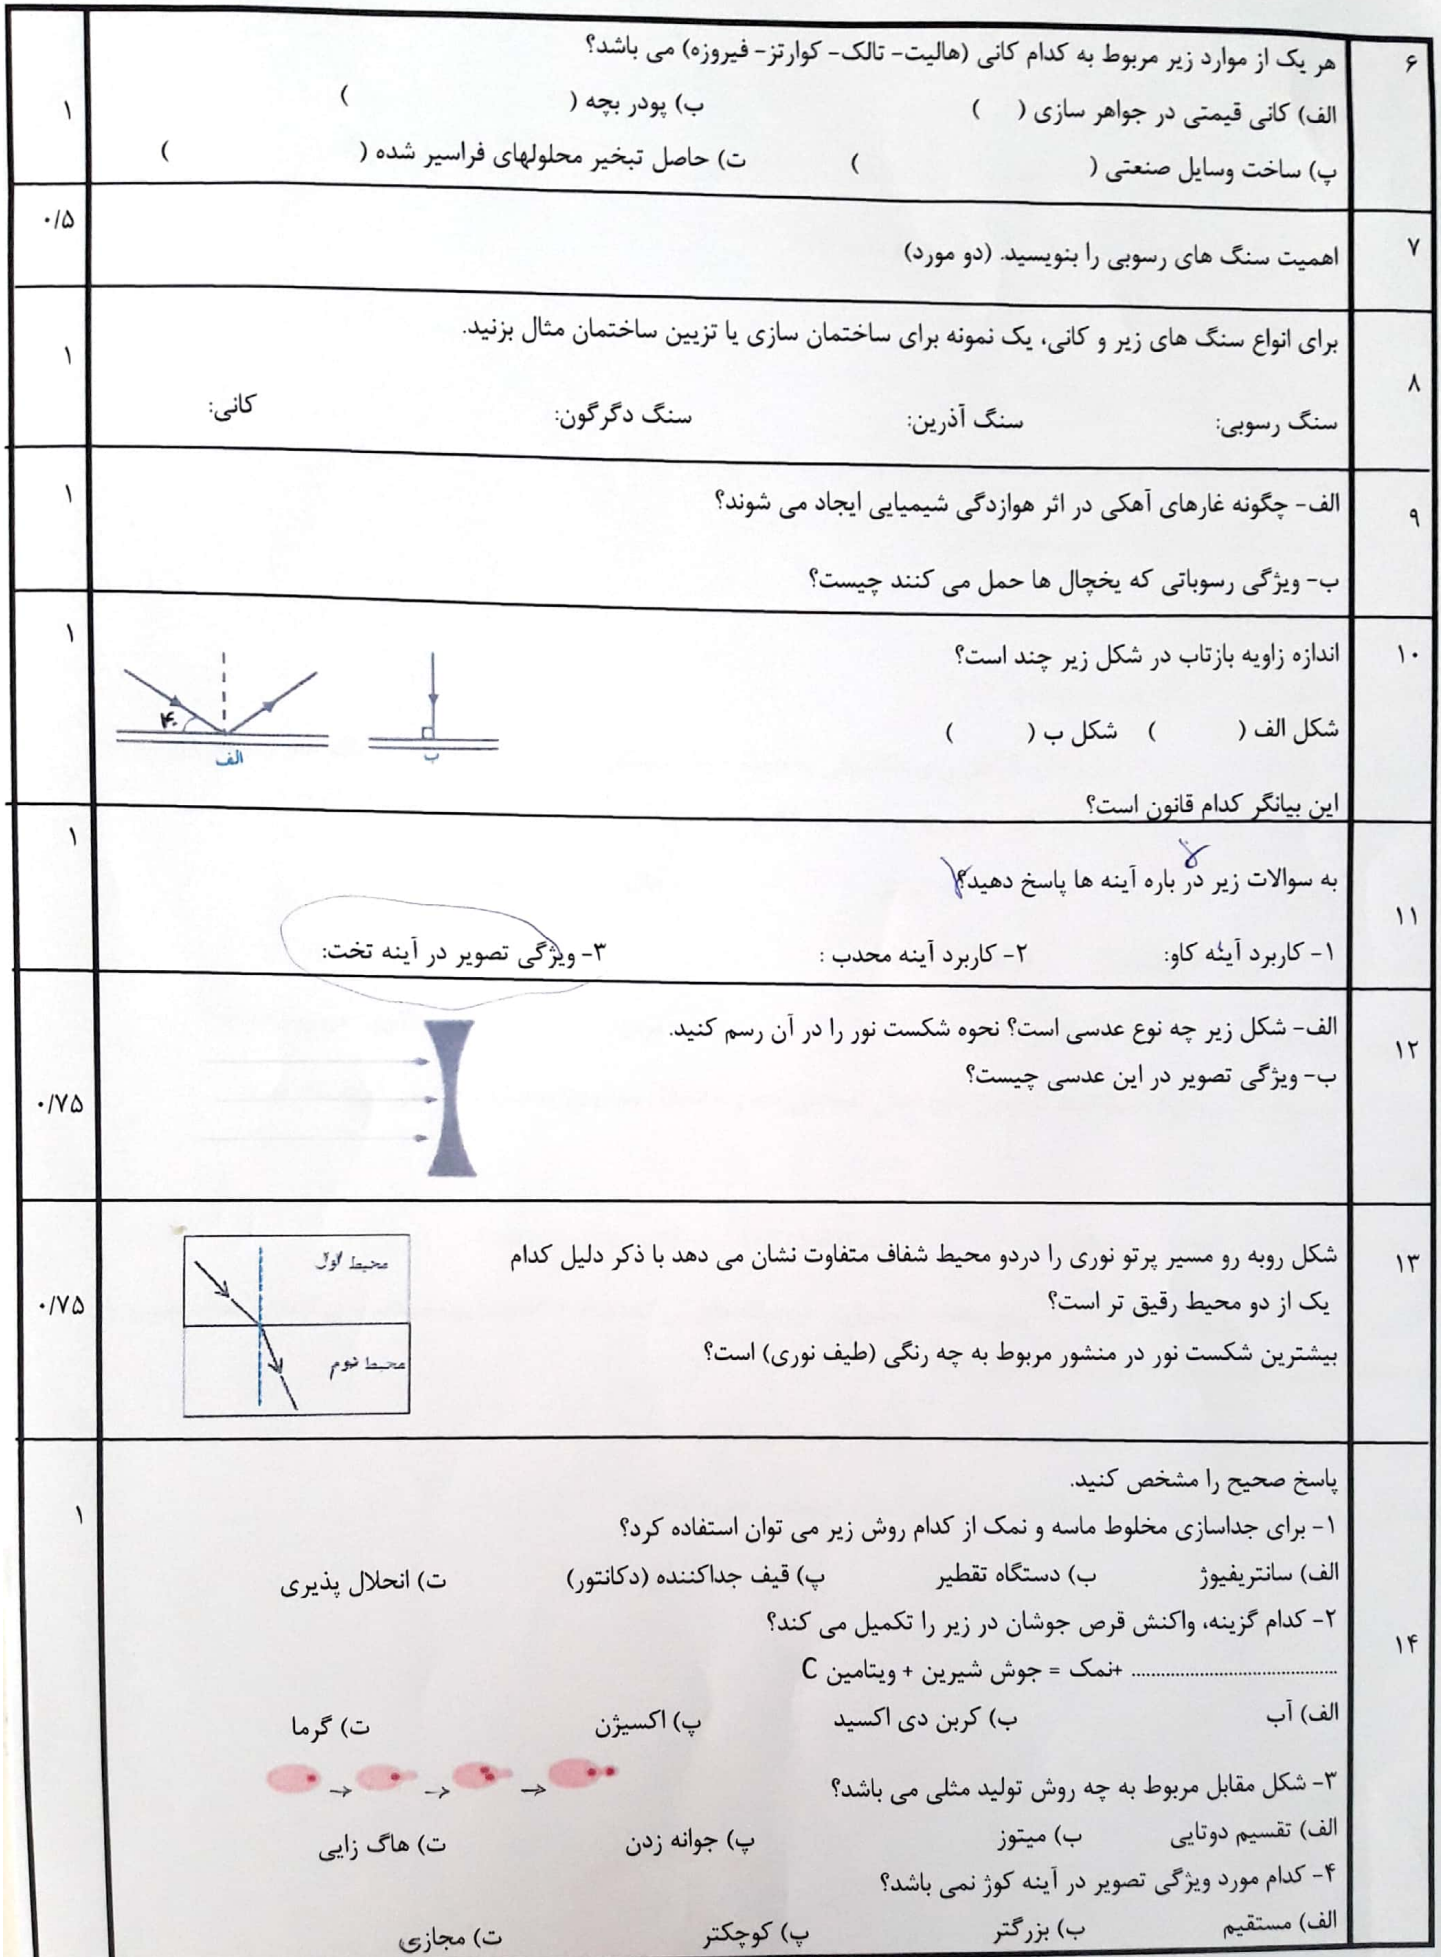 ۶
هر یک از موارد زیر مربوط به کدام کانی (هالیت- تالک- کوارتز- فیروزه) می باشد؟
الف) کانی قیمتی در جواهر سازی (    ) ب) پودر بچه (    )
۱
پ) ساخت وسایل صنعتی (    ) ت) حاصل تبخیر محلولهای فراسیر شده (    )
۷
اهمیت سنگ های رسوبی را بنویسید. (دو مورد)
۰/۵
۸
برای انواع سنگ های زیر و کانی، یک نمونه برای ساختمان سازی یا تزیین ساختمان مثال بزنید.
۱
سنگ رسوبی: سنگ آذرین: سنگ دگرگون: کانی:
۹
الف- چگونه غارهای آهکی در اثر هوازدگی شیمیایی ایجاد می شوند؟
۱
ب- ویژگی رسوباتی که یخچال ها حمل می کنند چیست؟
۱۰
اندازه زاویه بازتاب در شکل زیر چند است؟
۱
شکل الف (    ) شکل ب (    )
۴۰
الف
ب
این بیانگر کدام قانون است؟
۱۱
به سوالات زیر در باره آینه ها پاسخ دهید؟
۱
۱- کاربرد آینه کاو: ۲- کاربرد آینه محدب : ۳- ویژگی تصویر در آینه تخت:
۱۲
الف- شکل زیر چه نوع عدسی است؟ نحوه شکست نور را در آن رسم کنید.
ب- ویژگی تصویر در این عدسی چیست؟
۰/۷۵
۱۳
شکل روبه رو مسیر پرتو نوری را دردو محیط شفاف متفاوت نشان می دهد با ذکر دلیل کدام
یک از دو محیط رقیق تر است؟
۰/۷۵
بیشترین شکست نور در منشور مربوط به چه رنگی (طیف نوری) است؟
محیط اول
محیط دوم
۱۴
پاسخ صحیح را مشخص کنید.
۱
۱- برای جداسازی مخلوط ماسه و نمک از کدام روش زیر می توان استفاده کرد؟
الف) سانتریفیوژ ب) دستگاه تقطیر پ) قیف جداکننده (دکانتور) ت) انحلال پذیری
۲- کدام گزینه، واکنش قرص جوشان در زیر را تکمیل می کند؟
........................................... +نمک = جوش شیرین + ویتامین C
الف) آب ب) کربن دی اکسید پ) اکسیژن ت) گرما
۳- شکل مقابل مربوط به چه روش تولید مثلی می باشد؟
الف) تقسیم دوتایی ب) میتوز پ) جوانه زدن ت) هاگ زایی
۴- کدام مورد ویژگی تصویر در آینه کوژ نمی باشد؟
الف) مستقیم ب) بزرگتر پ) کوچکتر ت) مجازی